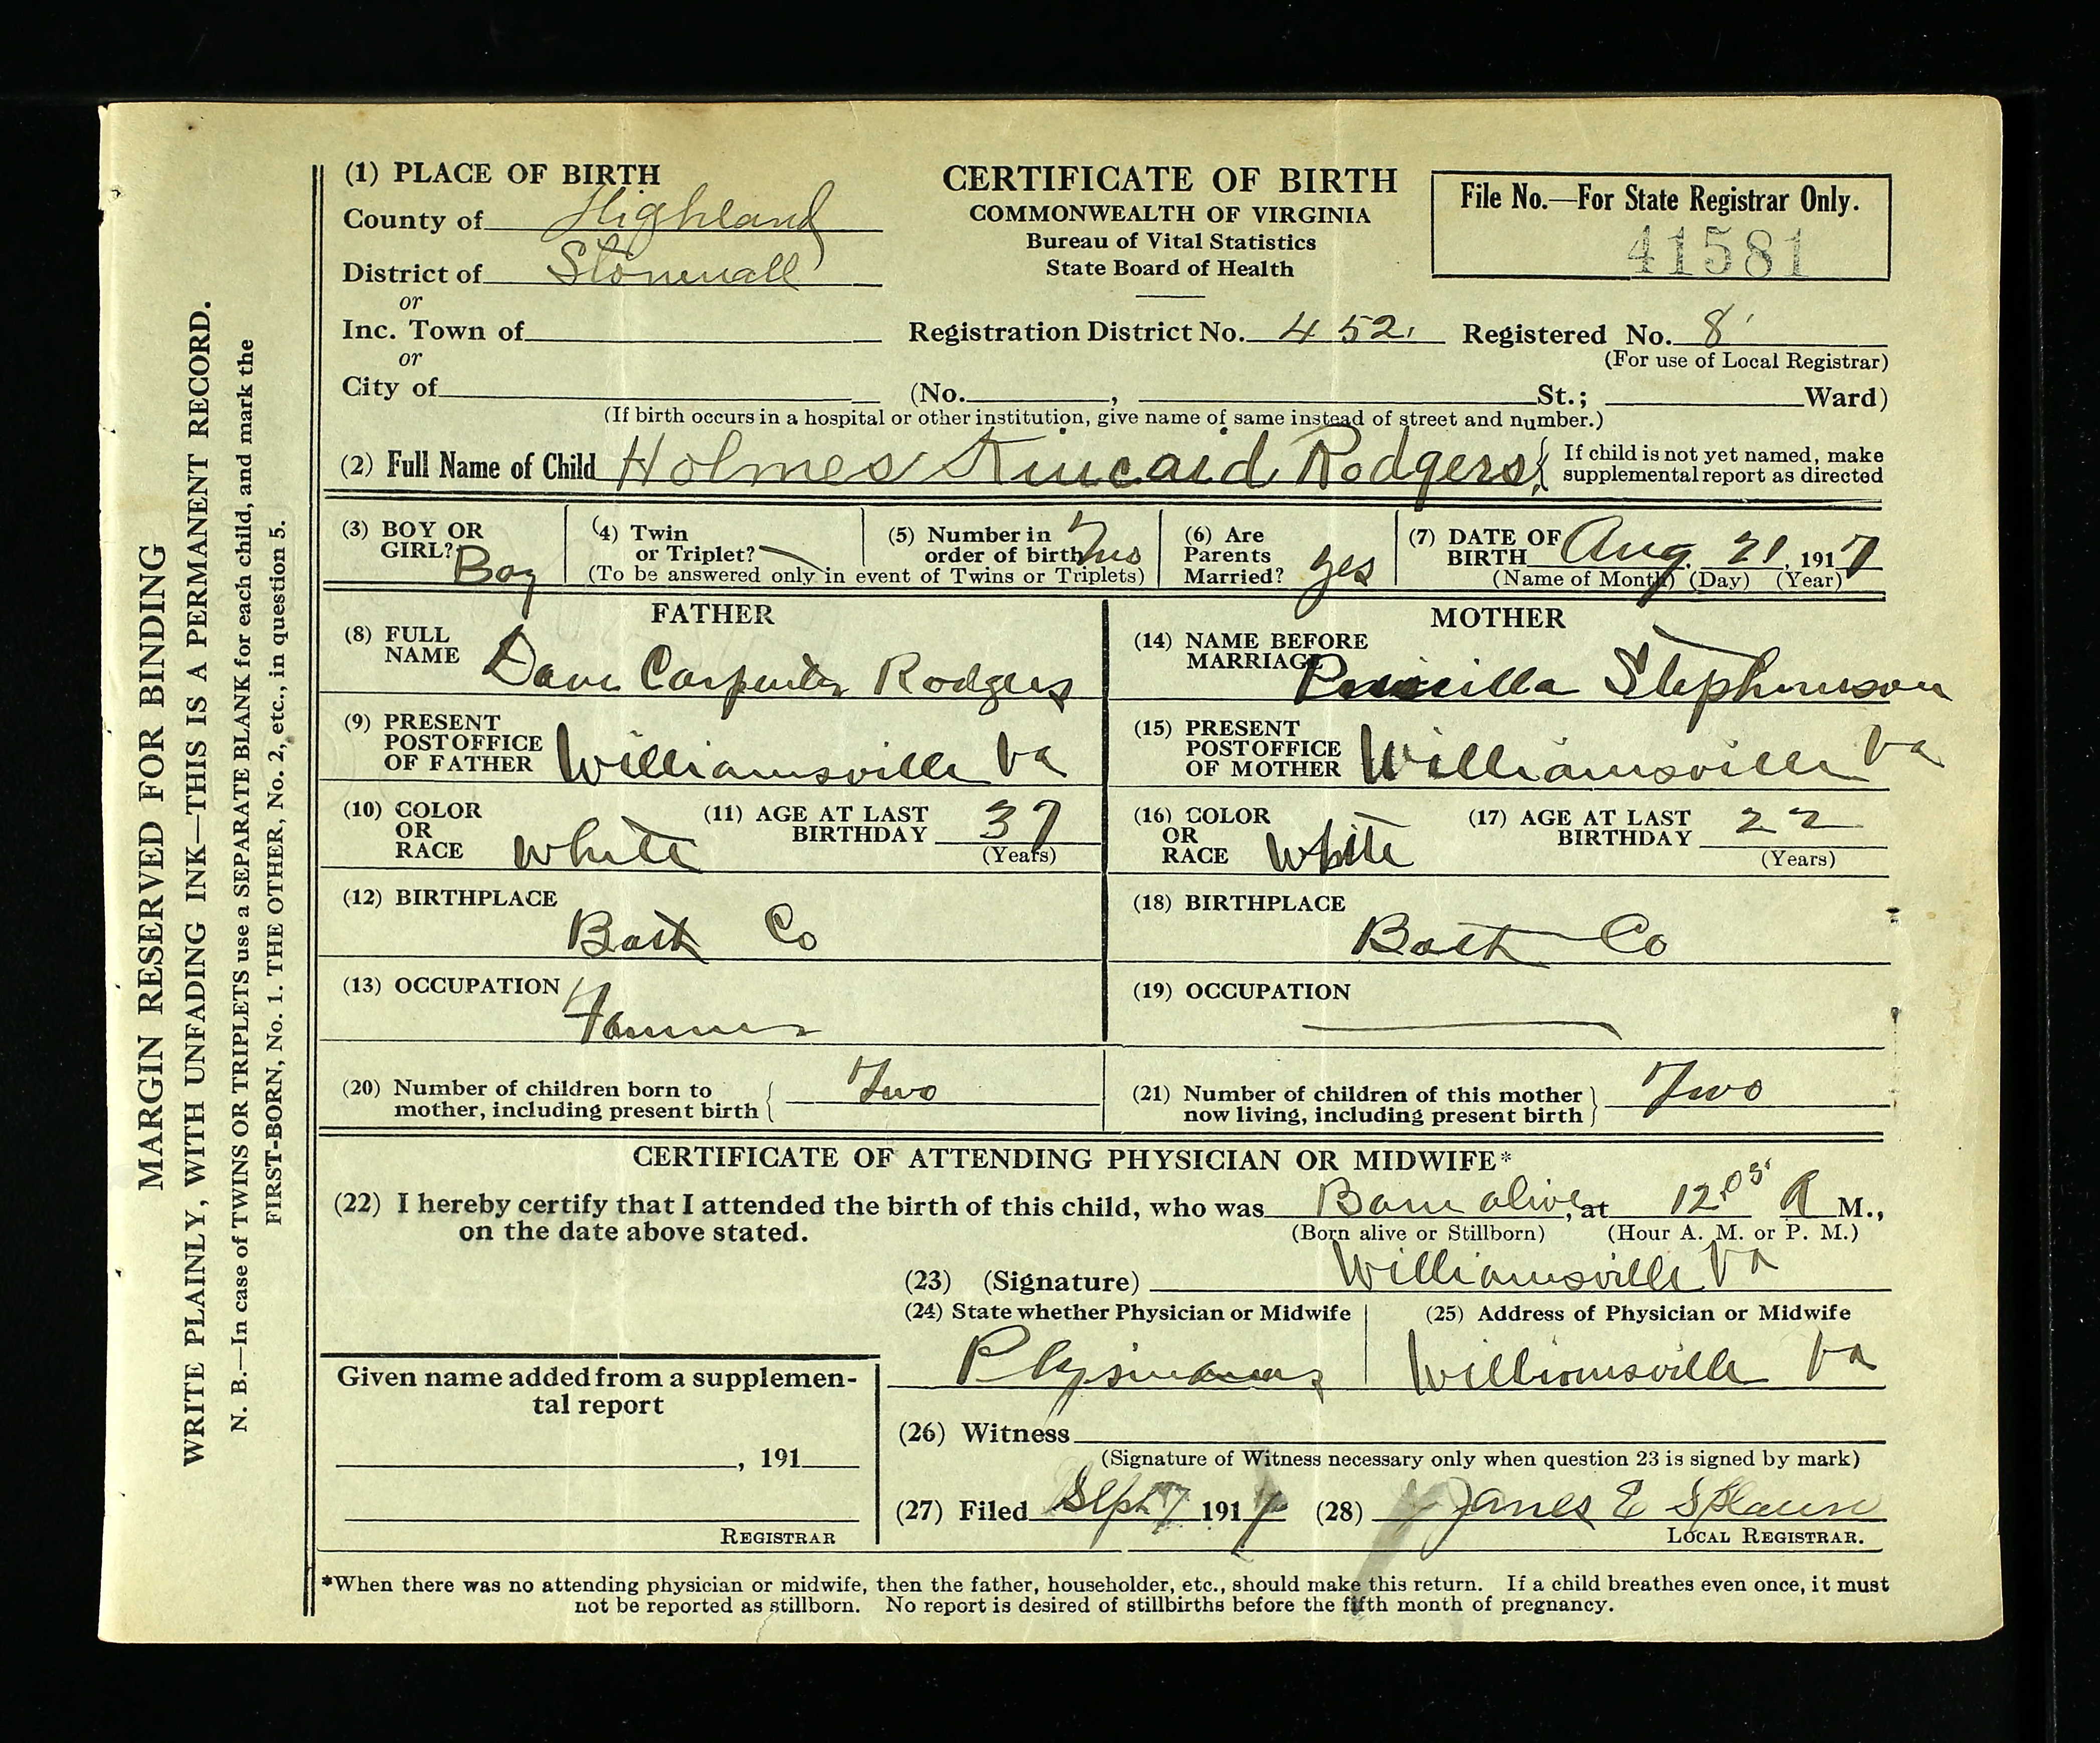 MARGIN RESERVED FOR BINDING
WRITE PLAINLY, WITH UNFADING INK—THIS IS A PERMANENT RECORD.
N. B.—In case of TWINS OR TRIPLETS use a SEPARATE BLANK for each child, and mark the
FIRST-BORN, No. 1. THE OTHER, No. 2, etc., in question 5.
(1) PLACE OF BIRTH
County of Highland
District of Stonewall
or
Inc. Town of
or
City of
CERTIFICATE OF BIRTH
COMMONWEALTH OF VIRGINIA
Bureau of Vital Statistics
State Board of Health
File No.—For State Registrar Only.
41581
Registration District No. 452. Registered No. 8
(For use of Local Registrar)
(No. , St.; Ward)
(If birth occurs in a hospital or other institution, give name of same instead of street and number.)
(2) Full Name of Child Holmes Kincaid Rodgers { If child is not yet named, make
supplemental report as directed
(3) BOY OR
GIRL? Boy
(4) Twin
or Triplet?
(5) Number in
order of birth Two
(To be answered only in event of Twins or Triplets)
(6) Are
Parents
Married? yes
(7) DATE OF
BIRTH Aug. 21, 1917
(Name of Month) (Day) (Year)
FATHER
(8) FULL
NAME Dave Carpenter Rodgers
(9) PRESENT
POSTOFFICE
OF FATHER Williamsville Va
(10) COLOR
OR
RACE White
(11) AGE AT LAST
BIRTHDAY 37
(Years)
(12) BIRTHPLACE
Bath Co
(13) OCCUPATION
Farmer
MOTHER
(14) NAME BEFORE
MARRIAGE Stephenson
(15) PRESENT
POSTOFFICE
OF MOTHER Williamsville Va
(16) COLOR
OR
RACE White
(17) AGE AT LAST
BIRTHDAY 22
(Years)
(18) BIRTHPLACE
Bath Co
(19) OCCUPATION
(20) Number of children born to
mother, including present birth { Two
(21) Number of children of this mother
now living, including present birth } Two
CERTIFICATE OF ATTENDING PHYSICIAN OR MIDWIFE*
(22) I hereby certify that I attended the birth of this child, who was Born alive, at 12.05 A M.,
on the date above stated. (Born alive or Stillborn) (Hour A. M. or P. M.)
(23) (Signature) Williamsville Va
(24) State whether Physician or Midwife
(25) Address of Physician or Midwife
Williamsville Va
(26) Witness
(Signature of Witness necessary only when question 23 is signed by mark)
(27) Filed Sept 7 1917 (28) James E
LOCAL REGISTRAR.
Given name added from a supplemen-
tal report
, 191
REGISTRAR
*When there was no attending physician or midwife, then the father, householder, etc., should make this return. If a child breathes even once, it must
not be reported as stillborn. No report is desired of stillbirths before the fifth month of pregnancy.